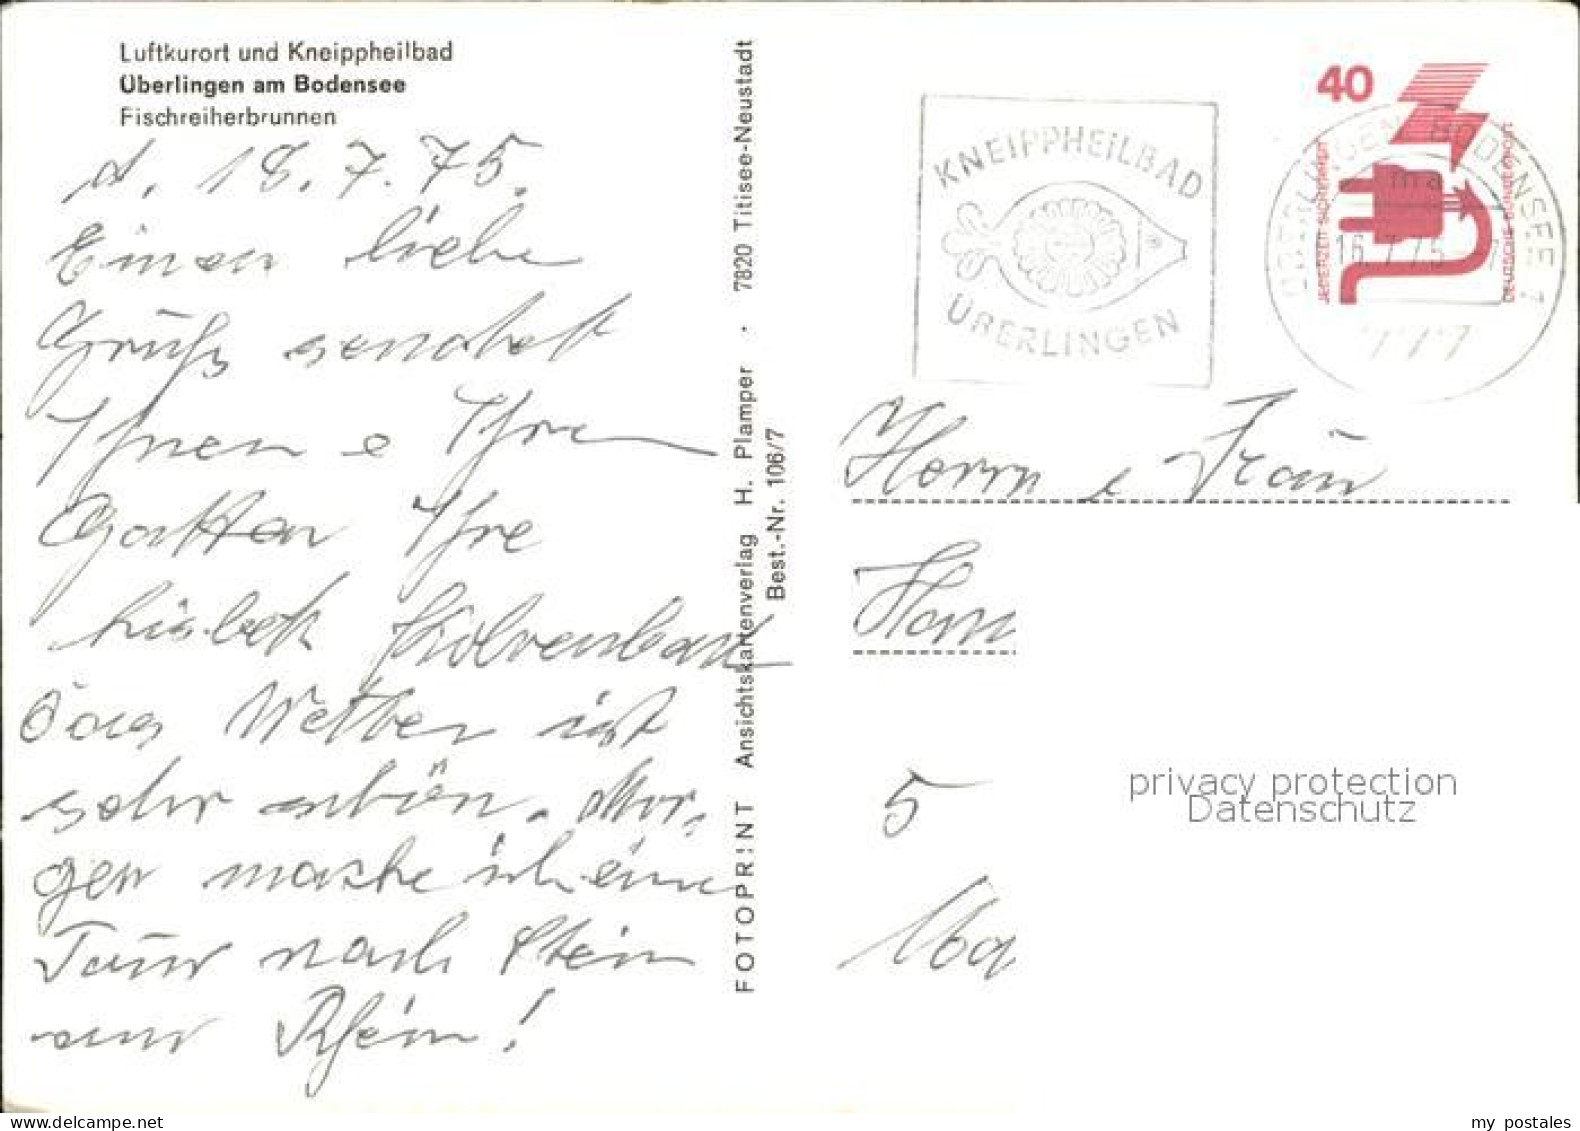 Luftkurort und Kneippheilbad
Überlingen am Bodensee
Fischreiherbrunnen
d. 18.7.75.
Einen liebe
Gruß sendet
Ihnen u Ihren
Gatten Ihre
Lisbeth
Das Wetter ist
sehr schön. Mor-
gen mache ich eine
Tour nach Stein
am Rhein!
FOTOPRINT Ansichtskartenverlag H. Plamper · 7820 Titisee-Neustadt
Best.-Nr. 106/7
KNEIPPHEILBAD
ÜBERLINGEN
40
JEDERZEIT SICHERHEIT
DEUTSCHE BUNDESPOST
ÜBERLINGEN, BODENSEE 1
ma
16.7.75
Herrn u Frau
5
privacy protection
Datenschutz
my postales